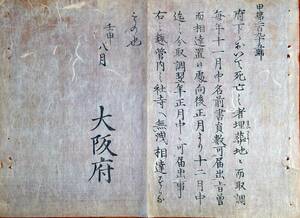 府下ニおゐて死亡之者埋葬地ニ而取調
毎年十一月中名前書員数可届出旨曽
而相達置候處向後正月ゟ十二月中
迄之分取調翌年正月中ニ可届出事
右之趣管内之社寺へ無洩相達するも
その也
壬申八月
大阪府